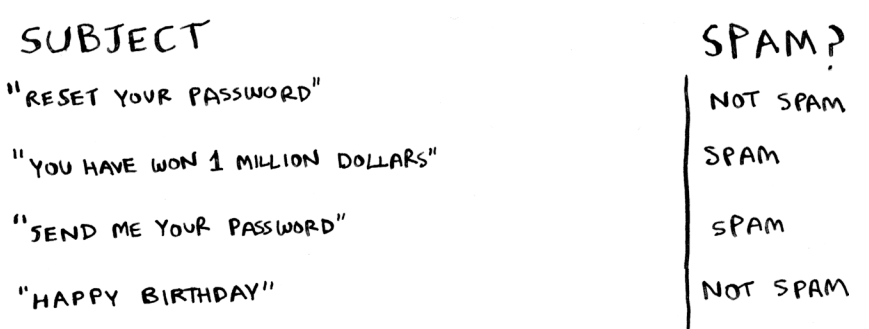 SUBJECT SPAM?
"RESET YOUR PASSWORD" NOT SPAM
"YOU HAVE WON 1 MILLION DOLLARS" SPAM
"SEND ME YOUR PASSWORD" SPAM
"HAPPY BIRTHDAY" NOT SPAM